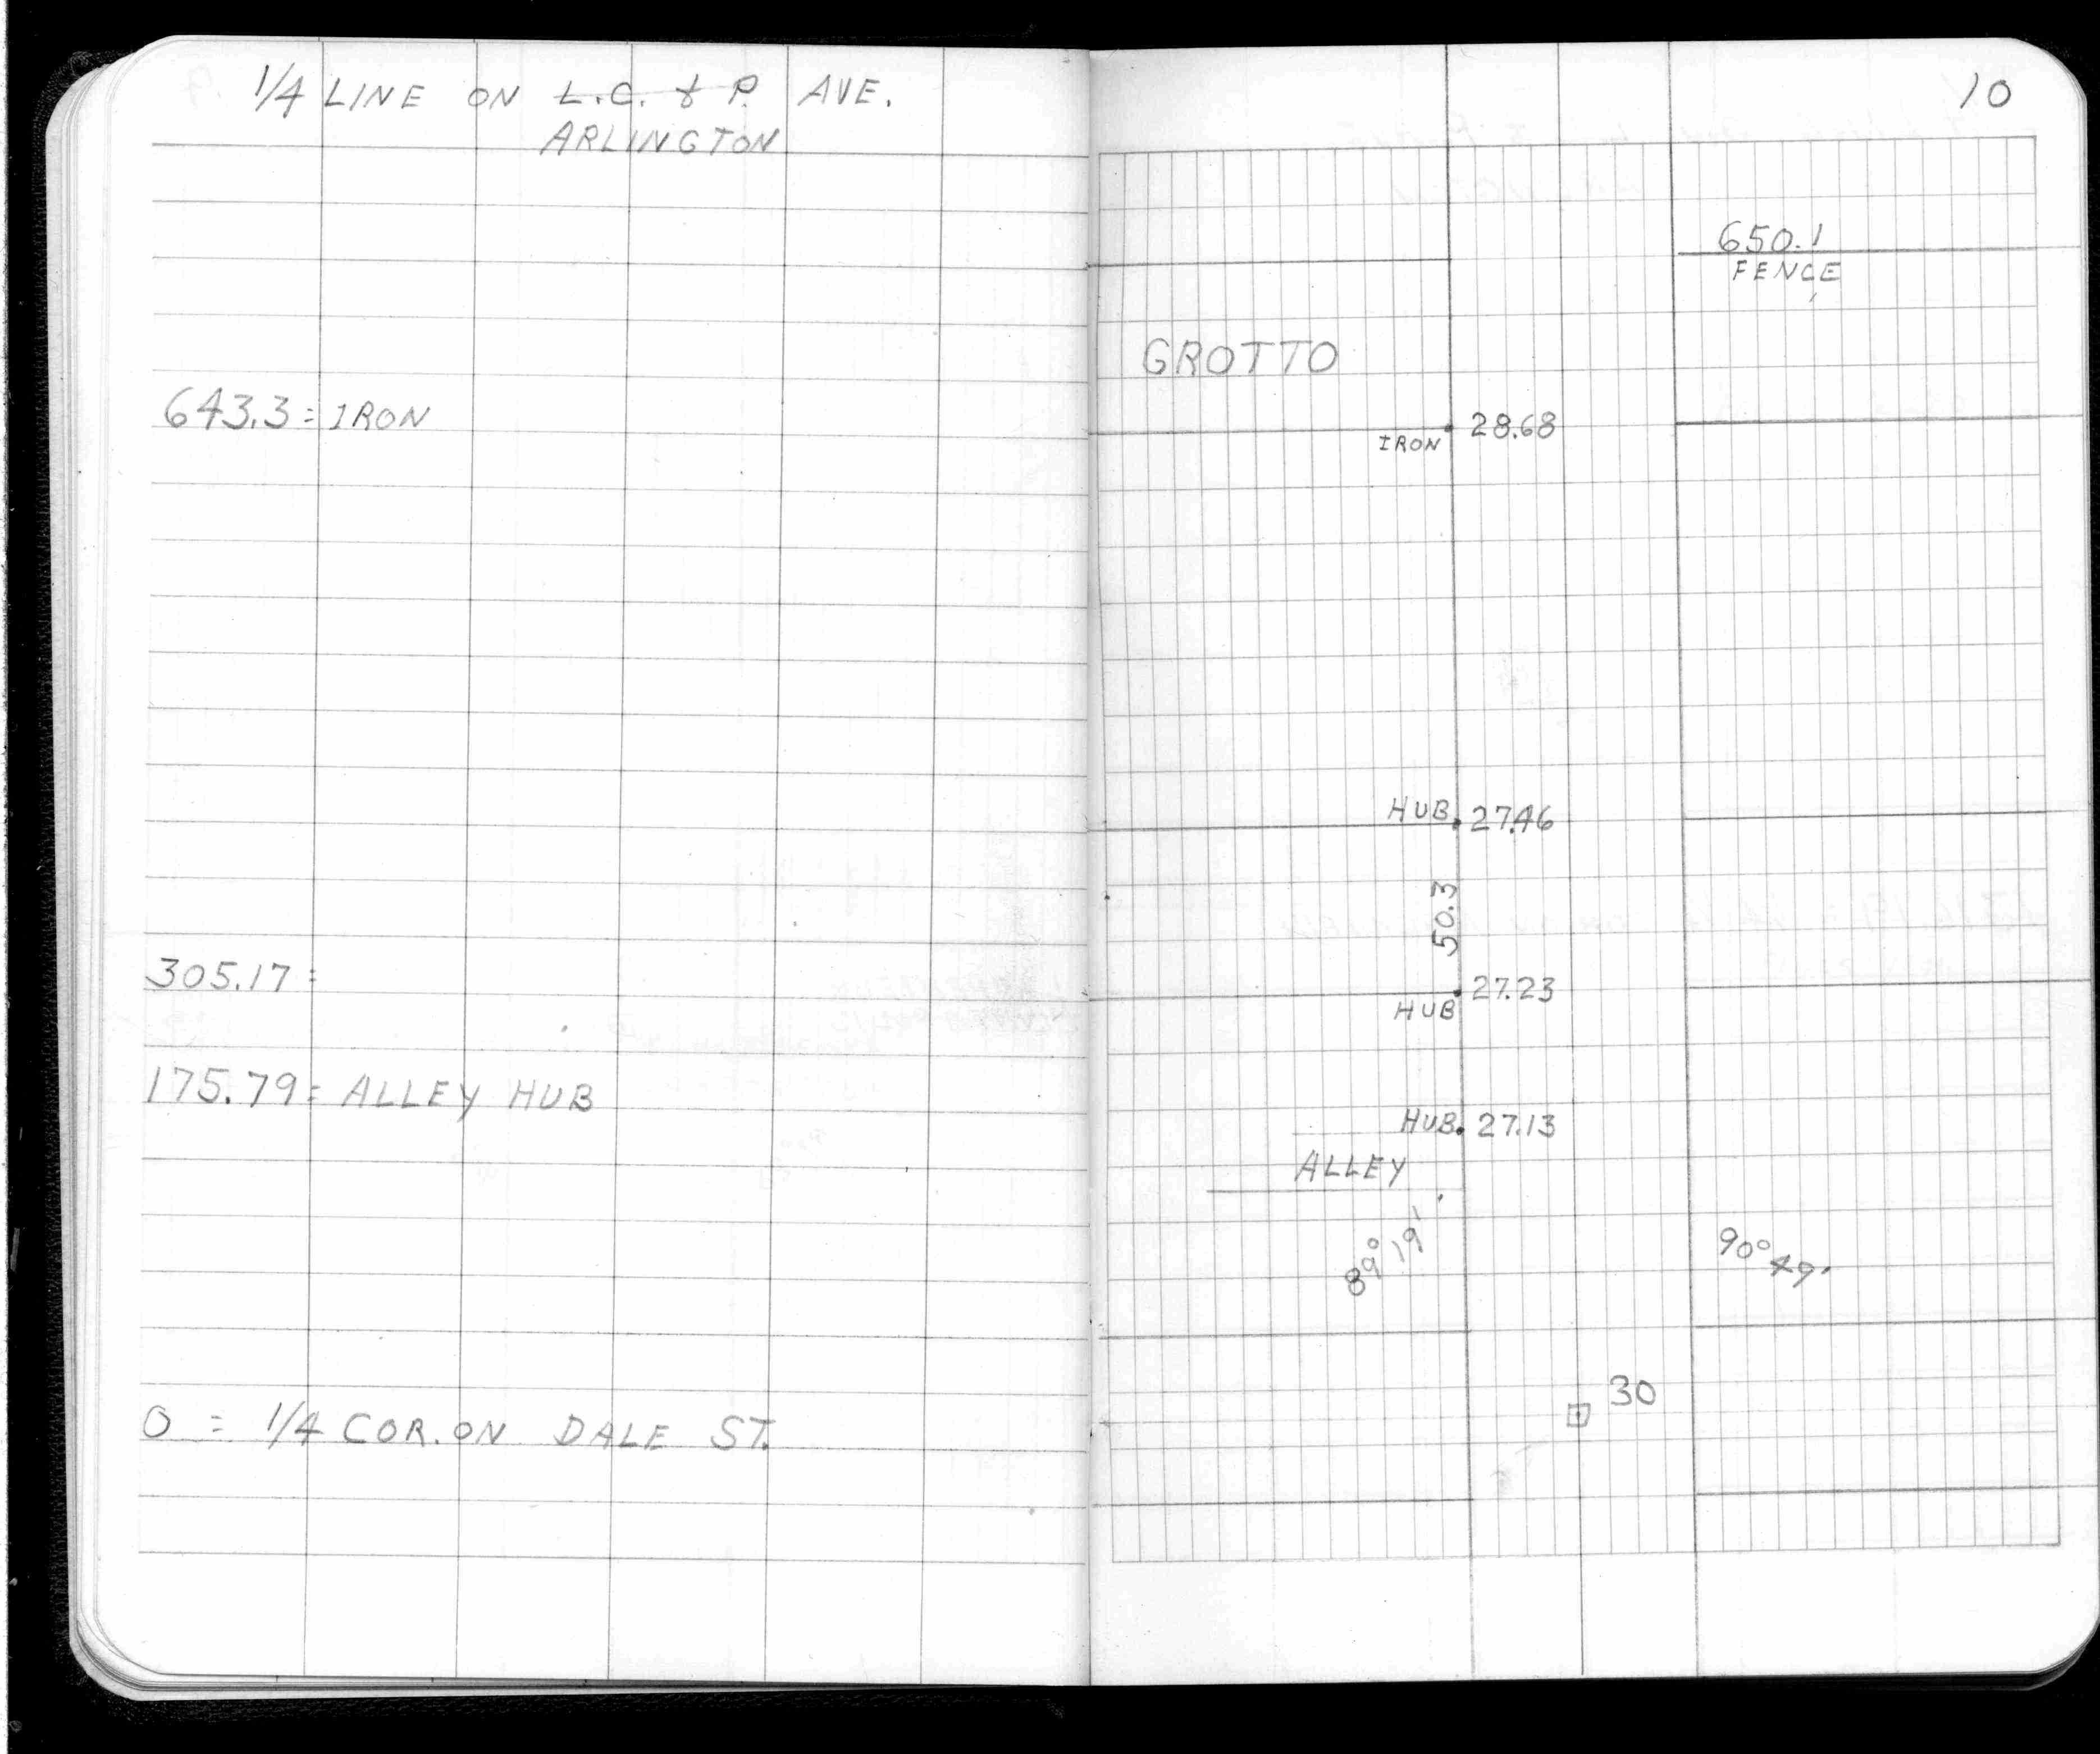 1/4 LINE ON L.C. & P. AVE.
ARLINGTON
643.3 = IRON
305.17 =
175.79 = ALLEY HUB
0 = 1/4 COR. ON DALE ST.
10
650.1
FENCE
GROTTO
IRON 28.68
HUB 27.46
50.3
HUB 27.23
HUB 27.13
ALLEY
89° 19'
90° 49'
30